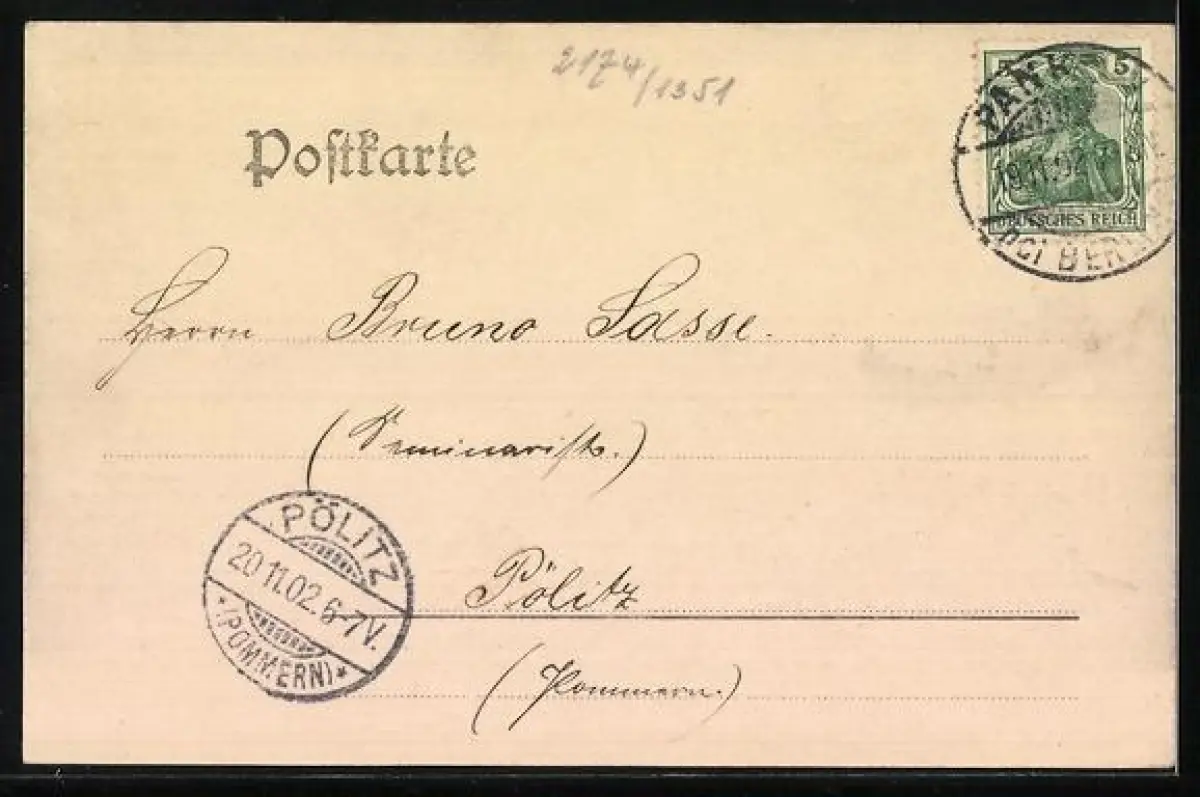 2174/1351
Postkarte
5
PANK
19.11.02. 7
DEUTSCHES REICH
BER
Herrn Bruno Sasse.
(Seminarist.)
PÖLITZ
20 11.02. 6-7V.
*(POMMERN)*
Pölitz
(Pommern.)